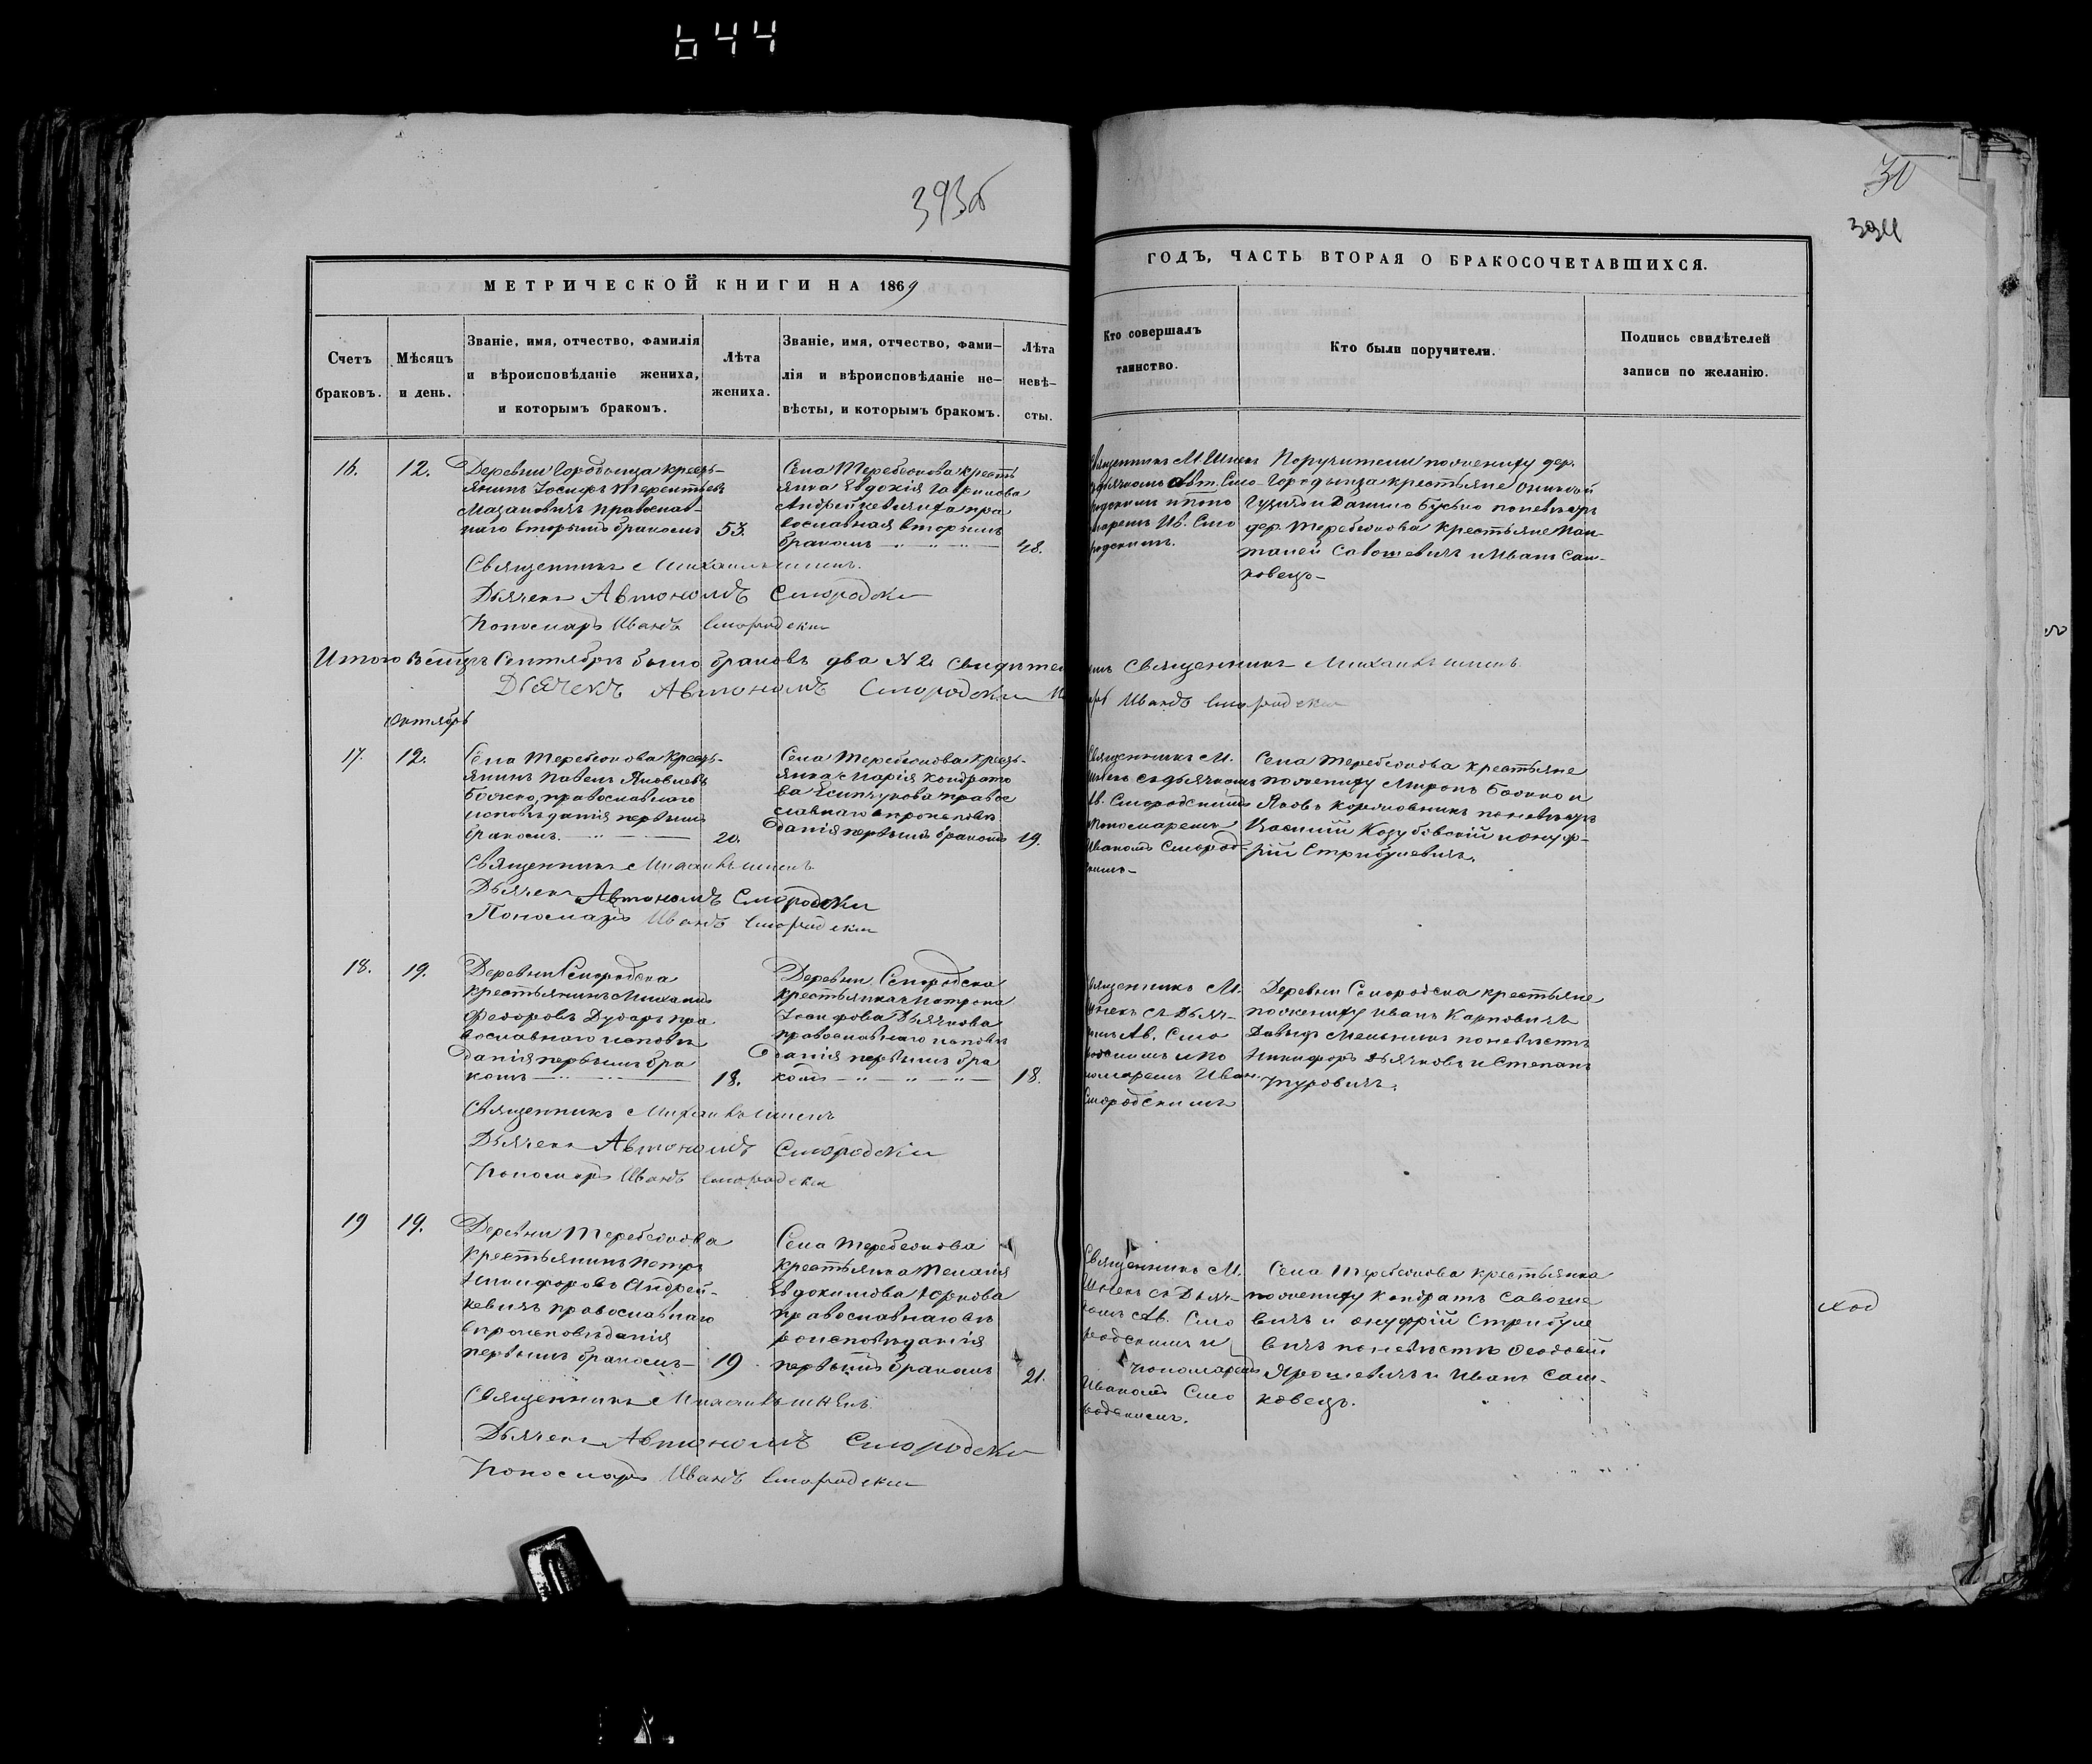 644
393б
30
394
МЕТРИЧЕСКОЙ КНИГИ НА 1869
ГОДЪ, ЧАСТЬ ВТОРАЯ О БРАКОСОЧЕТАВШИХСЯ.
Счетъ
браковъ.
Мѣсяцъ
и день.
Званіе, имя, отчество, фамилія
и вѣроисповѣданіе жениха,
и которымъ бракомъ.
Лѣта
жениха.
Званіе, имя, отчество, фами-
лія и вѣроисповѣданіе не-
вѣсты, и которымъ бракомъ.
Лѣта
невѣ-
сты.
Кто совершалъ
таинство.
Кто были поручители.
Подпись свидѣтелей
записи по желанію.
16.
12.
Деревни Городьища кресть-
янинъ Іосифъ Терентьевъ
Мазановичъ православ-
наго вторымъ бракомъ
53.
Села Теребежова кресть
янка Евдокія Гаврилова
Андрейкевичова пра
вославная вторымъ
бракомъ
48.
Священникъ М. Шнекъ
дьячкомъ Авт. Смо
родскимъ и Поно
маремъ Ив. Смо
родскимъ.
Поручители по жениху дер.
Городьища крестьяне
и Данило Бусько по невѣстѣ
дер. Теребежова крестьяне Пан-
талей Савошевичъ и Иванъ Сач-
ковецъ
Священникъ Михаилъ Шнекъ.
Дьячекъ Автономъ Смородски
Пономарь Иванъ Смородски
Итого въ Сентябрѣ было браковъ два № 2 Свидѣтел
Священникъ Михаилъ Шнекъ
Дьячекъ Автономъ Смородски
Иванъ Смородски
Октябрь
17.
12.
Села Теребежова кресть-
янинъ Павелъ Яковлевъ
Божко, православнаго
исповѣданія первымъ
бракомъ.
20.
Села Теребежова кресть-
янка Марія Кондрато
ва Есипчукова правос
славнаго вѣроисповѣ
данія первымъ бракомъ
19.
Священникъ М.
Шнекъ съ дьячкомъ
Ав. Смородскимъ
и Пономаремъ
Иваномъ Смород-
скимъ
Села Теребежова крестьяне
по жениху Миронъ Божко и
Яковъ по невѣстѣ
Василій Козубовскій и Онуф-
рій Стрибулевичъ.
Священникъ Михаилъ Шнекъ
Дьячекъ Автономъ Смородски
Пономарь Иванъ Смородски
18.
19.
Деревни Смородска
крестьянинъ Михаилъ
Федоровъ Дударь пра
вославнаго исповѣ
данія первымъ бра
комъ
18.
Деревни Смородска
крестьянка Матрона
Іосифова Дьячкова
православнаго исповѣ
данія первымъ бра
комъ
18.
Священникъ М.
Шнекъ съ Дьяч-
комъ Ав. Смо
родскимъ и по
номаремъ Иван.
Смородскимъ
Деревни Смородска крестьяне
по жениху Иванъ Карповичъ
Давыд Мельникъ по невѣстѣ
Никифоръ Дьячковъ и Степанъ
Туровичъ.
Священникъ Михаилъ Шнекъ
Дьячекъ Автономъ Смородски
Пономарь Иванъ Смородски
19
19.
Деревни Теребежова
крестьянинъ Петръ
Никифоровъ Андрей-
кевичъ православнаго
вѣроисповѣданія
первымъ бракомъ
19
Села Теребежова
крестьянка Пелагія
Евдокимова Юркова
православнаго вѣ
роисповѣданія
первымъ бракомъ
21.
Священникъ М.
Шнекъ съ Дьяч-
комъ Ав. Смо
родскимъ и
пономаремъ
Иваномъ Смо
родскимъ.
Села Теребежова крестьянка
по жениху Кондратъ Савоше
вичъ и Онуфрій Стрибуле
вичъ по невѣстѣ Феодосій
Ярошевичъ и Иванъ Сач-
ковецъ.
Священникъ Михаилъ Шнекъ.
Дьячекъ Автономъ Смородски
Пономарь Иванъ Смородски